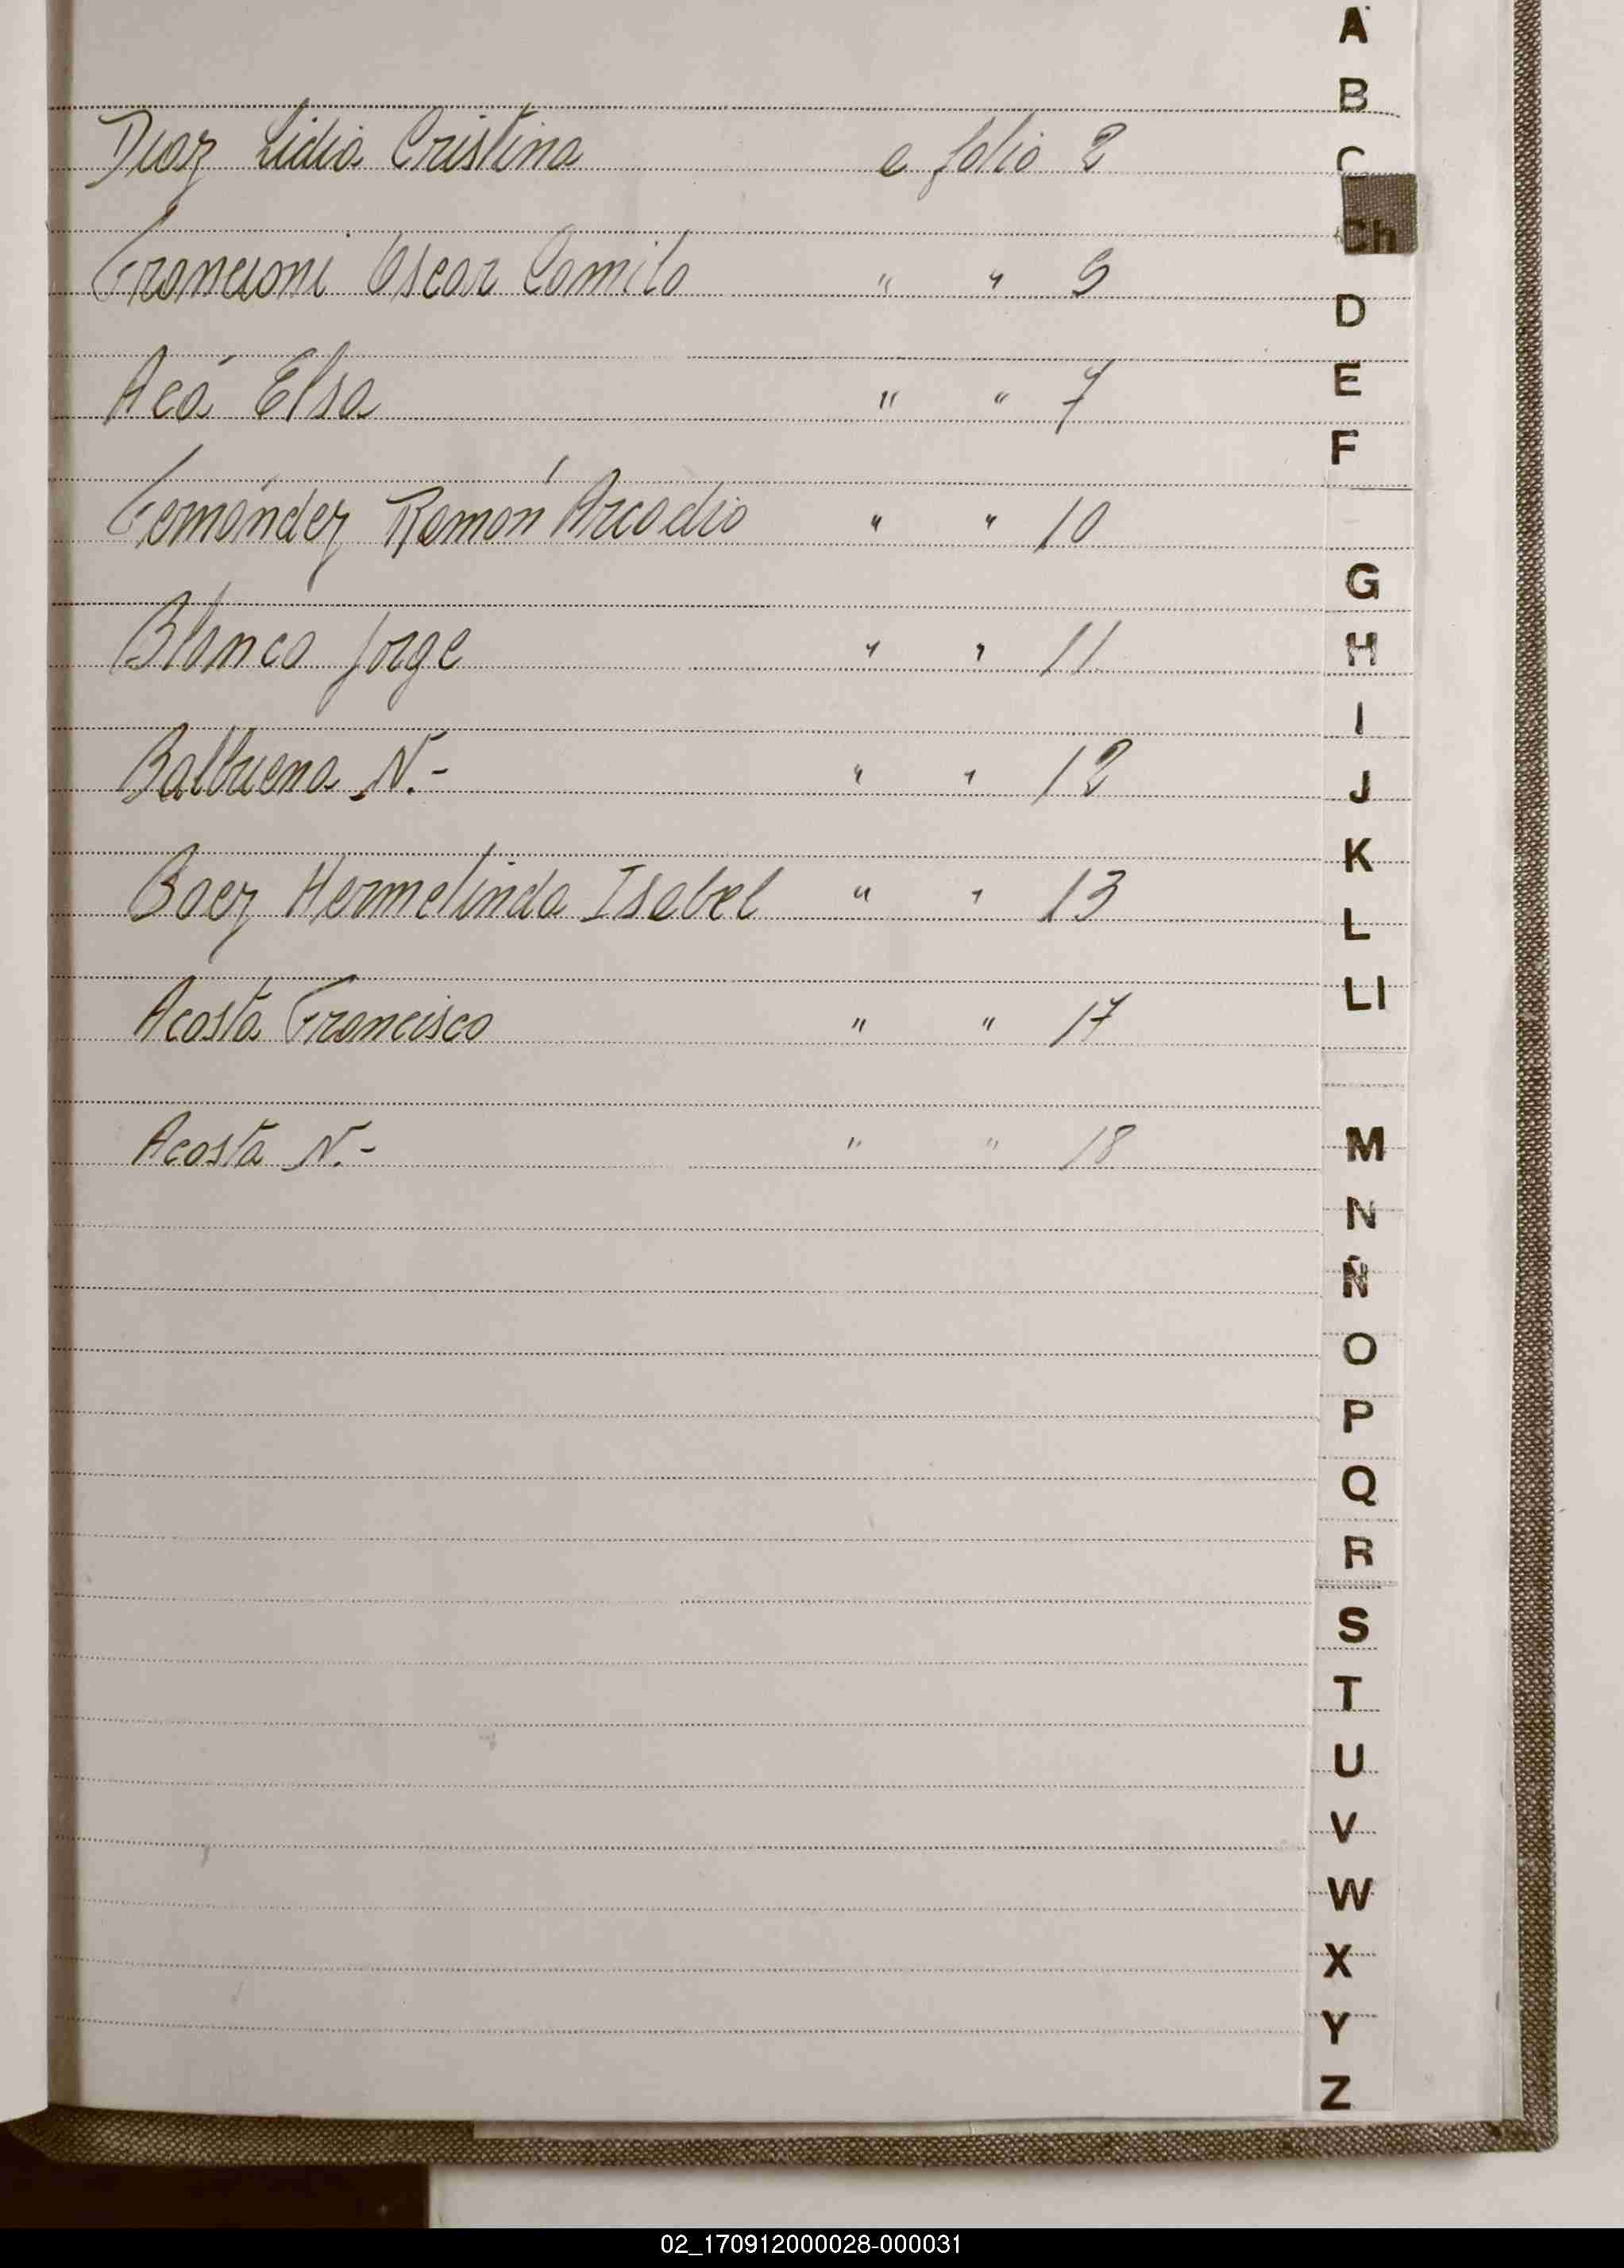 Diaz Lidia Cristina a folio 2
Francioni Oscar Camilo " " 5
Acá Elsa " " 7
Fernández Ramón Arcadio " " 10
Blanco Jorge " " 11
Balbuena N.- " " 12
Baez Hermelinda Isabel " " 13
Acosta Francisco " " 17
Acosta N.- " " 18
A
B
C
Ch
D
E
F
G
H
I
J
K
L
Ll
M
N
Ñ
O
P
Q
R
S
T
U
V
W
X
Y
Z
02_170912000028-000031